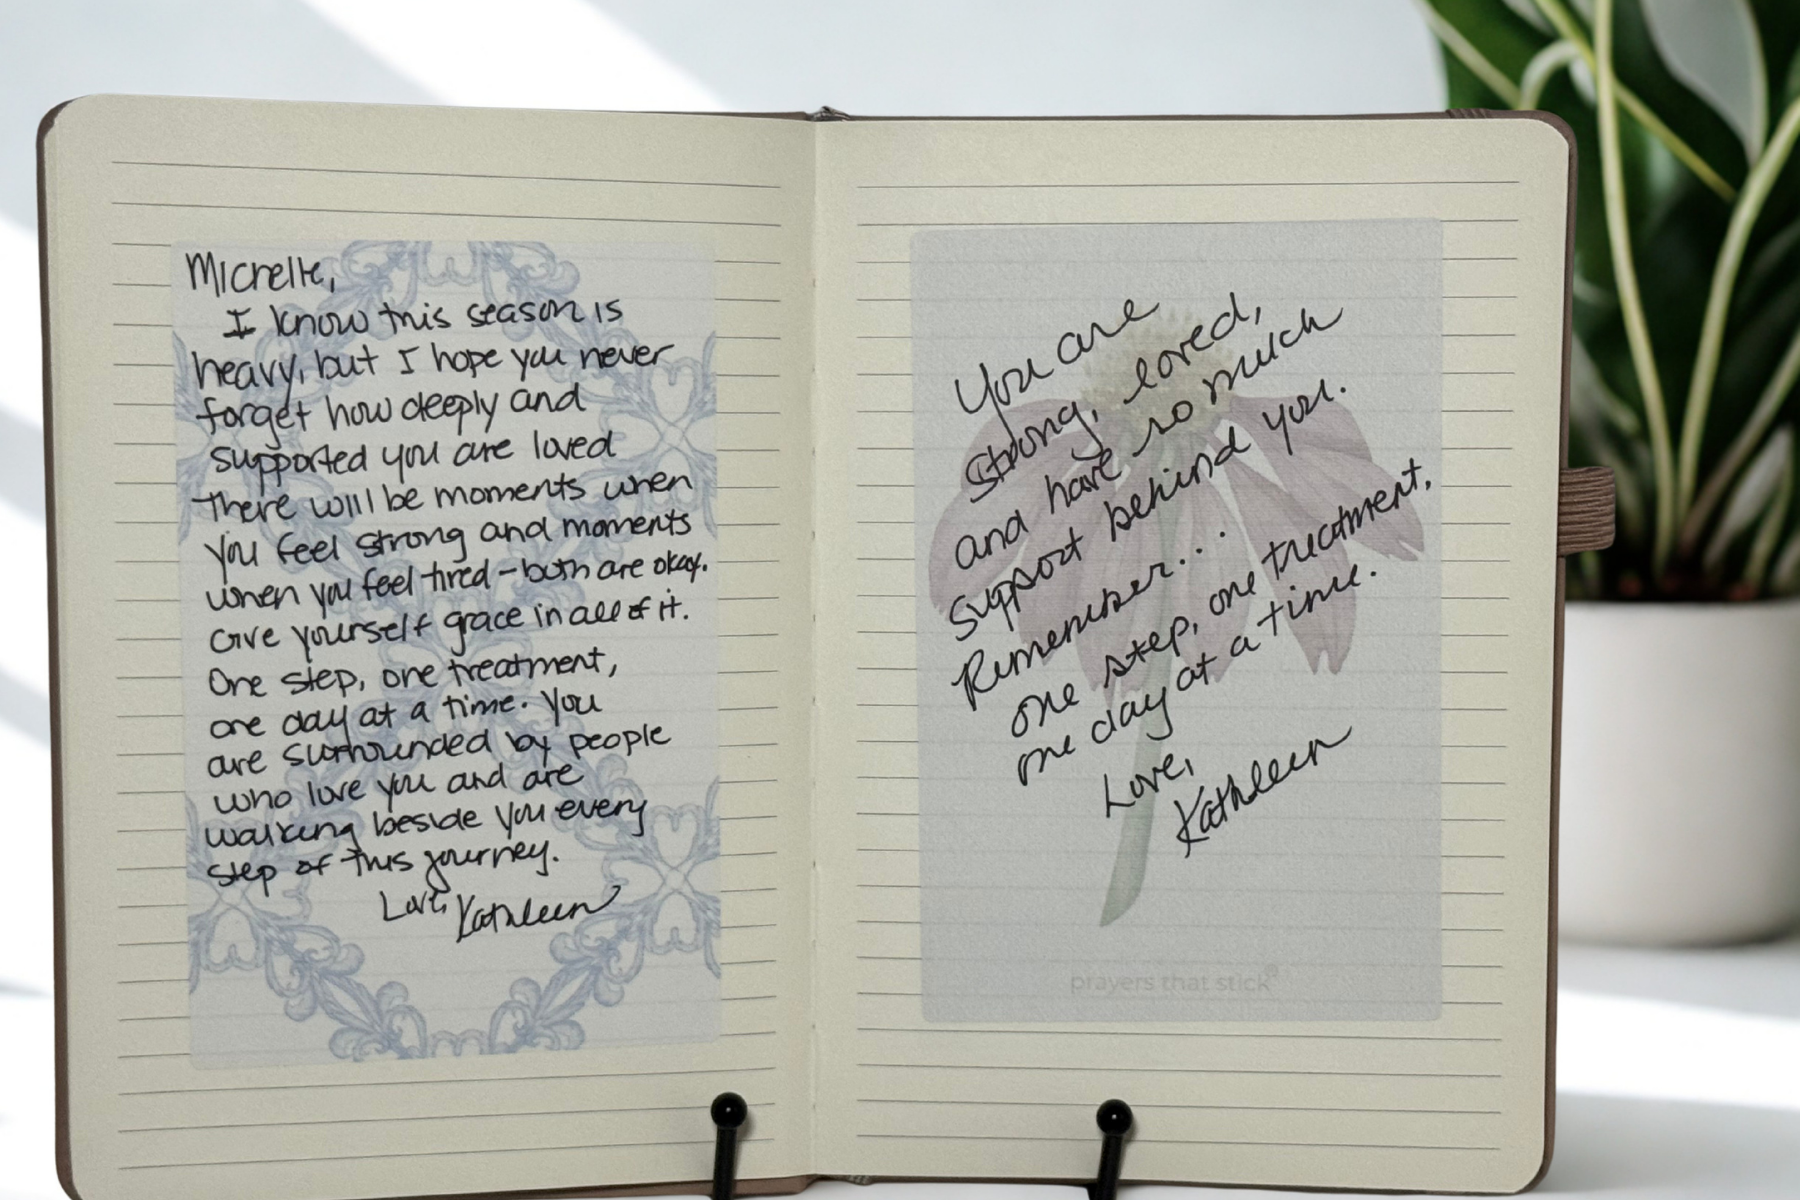 Michelle,
I know this season is
heavy, but I hope you never
forget how deeply and
supported you are loved
There will be moments when
you feel strong and moments
when you feel tired - both are okay.
Give yourself grace in all of it.
One step, one treatment,
one day at a time. You
are surrounded by people
who love you and are
walking beside you every
step of this journey.
Love, Kathleen
You are
strong, loved,
and have so much
support behind you.
Remember...
one step, one treatment,
one day at a time.
Love,
Kathleen
prayers that stick®